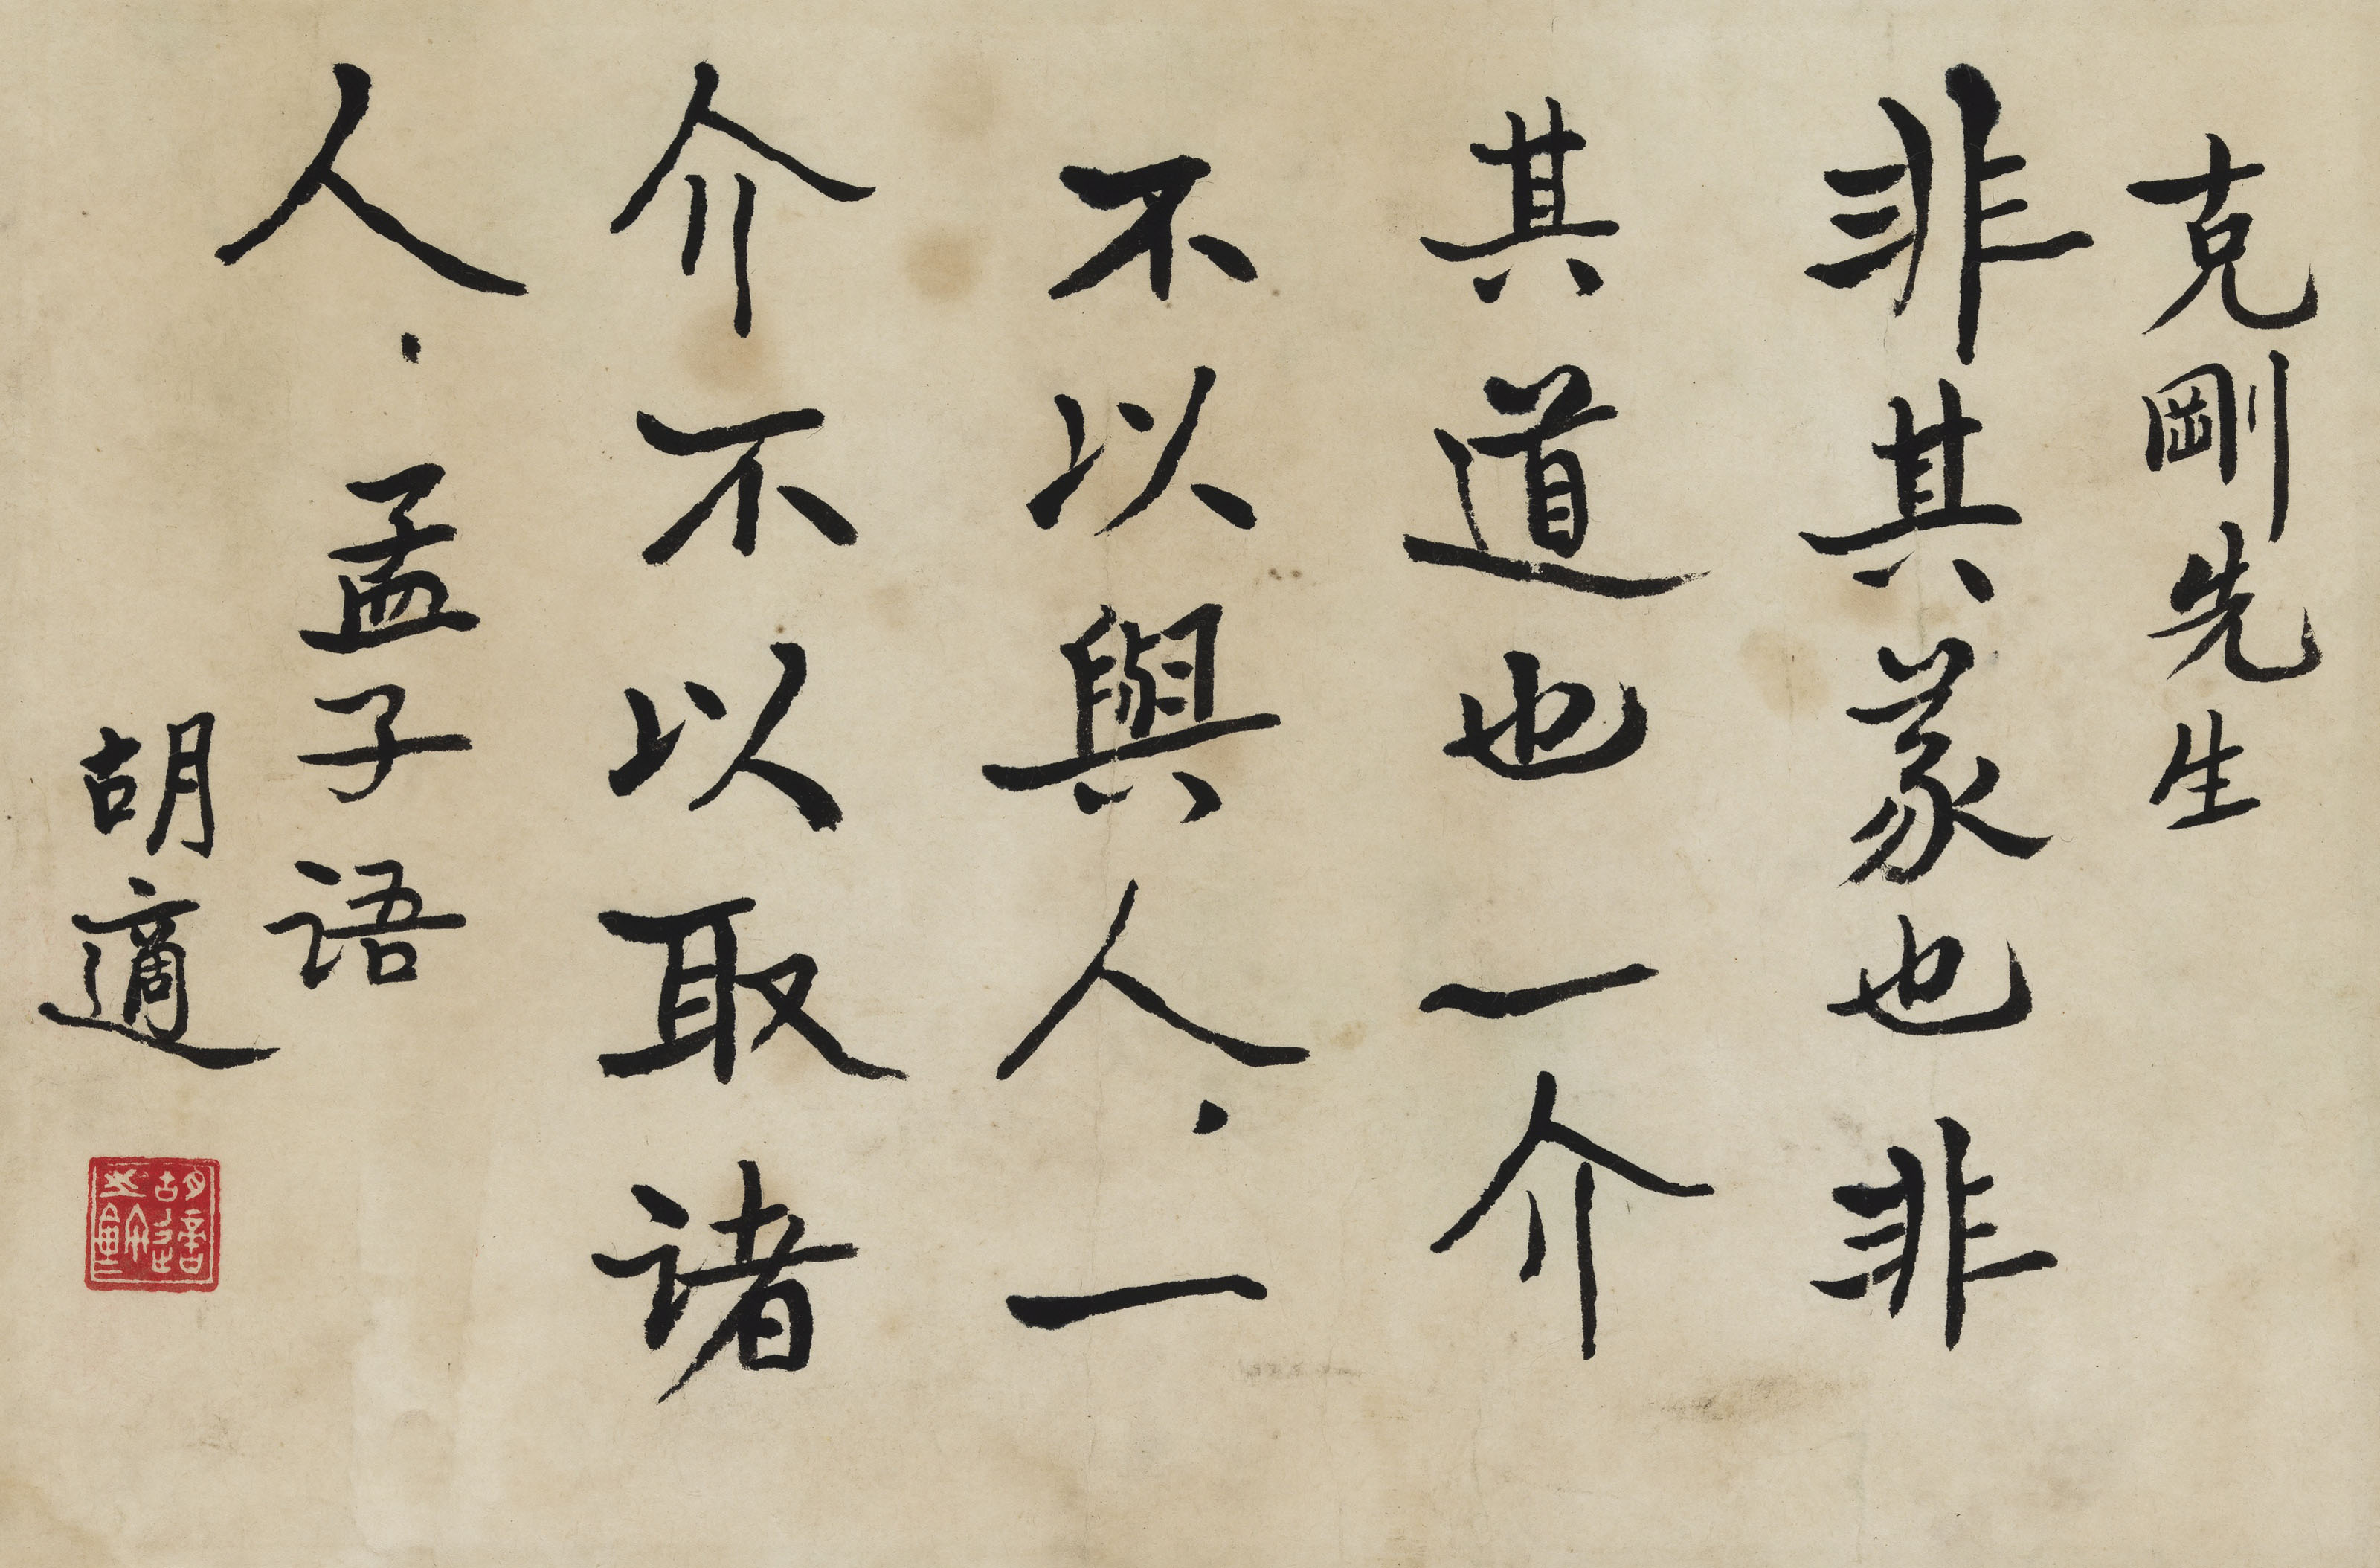 克剛先生
非其義也非
其道也一介
不以與人．一
介不以取諸
人．孟子語
胡適
胡適之